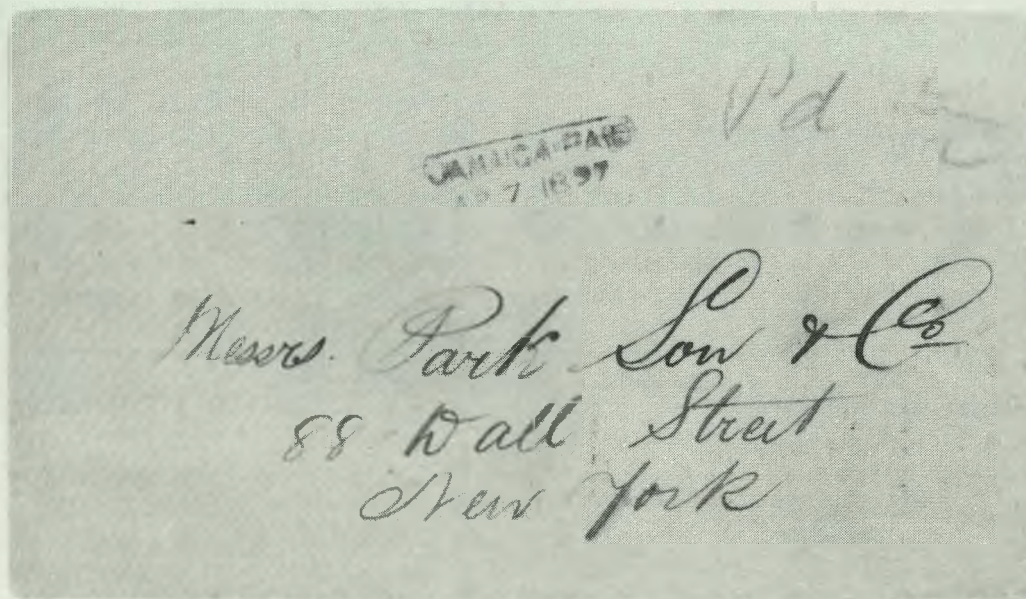 Pd
JAMAICA·PAID
AP 7 1897
Messrs. Park Son & Co
88 Wall Street
New York